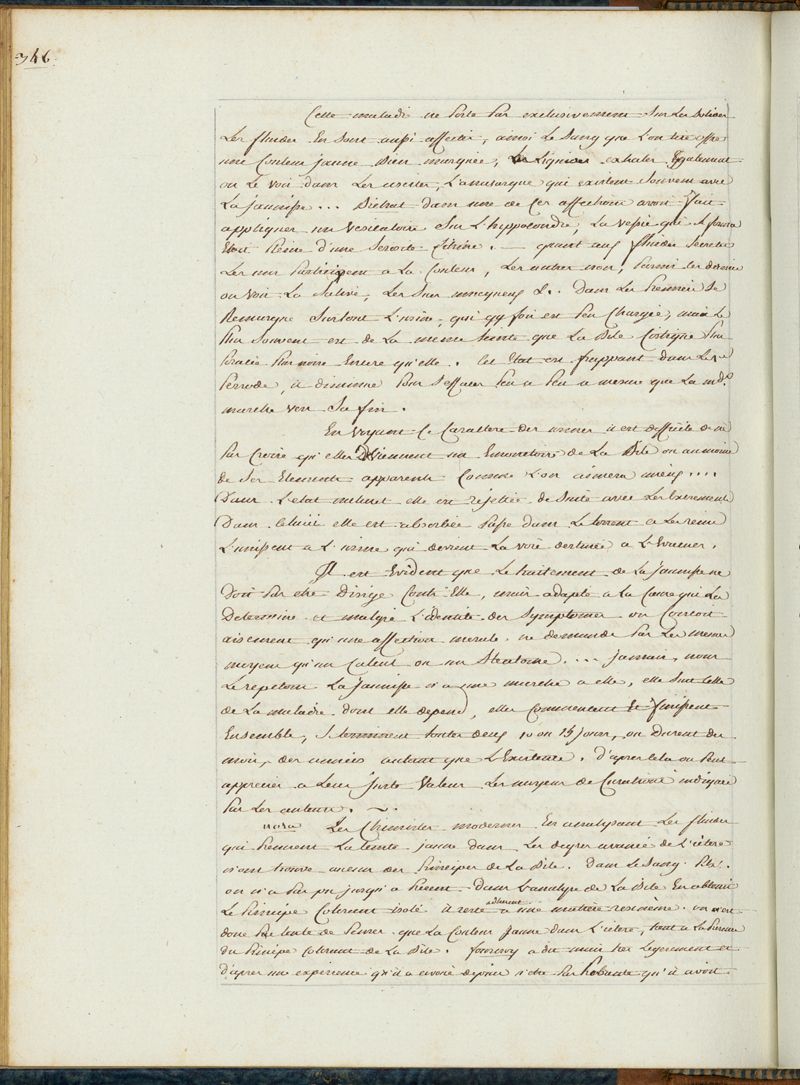 346.
Cette maladi ne porte par exclusivement sur les solides
Les fluides en sont aussi affectés, ainsi le sang que l'on tire offre
une Couleur jaune bien marquée, les lignes exhaler Egalement
on le voi dans les ascites, L'anasarque qui existent souvent avec
La jaunisse... Bichat dans une de ces affections avoit fait
appliquer un vesicatoire sur L'hippocondre, la vessie qui se forma
Etoit pleine d'une serosité Citrine. — quant aux fluides secretés
Les uns participent a la Couleur, les autres non, parmi les derniers
on voit la salive, les sucs muqueux &.. Dans les premiers se
Remarque surtout L'urine, qui qq fois est peu Chargée, mais le
Plus souvent est de la meme teinte que la Bile
plus noire Encore qu'elle. Cet Etat est frappant dans le 1er
Periode, il diminue pour s'effacer peu a peu a mesure que la mdie
marche vers sa fin.
En voyant ce Caractere des urines il est difficile de ne
Pas Croire qu'elles deviennent un Emonctoire de la Bile ou au moins
de ses Elements apparents Comme L'on aimera mieux....
Dans L'etat naturel elle est rejettée de suite avec les Excrements
Dans Celui ci elle est absorbée passe dans le torrent a les reins
L'unissent a L'urine qui devient la voie destinée a L'Evacuer.
Il est Evident que le traitement de la jaunisse ne
Doit pas etre Dirigé Contr Elle, mais adapté a la Cause qui la
Determine et malgre L'identité des symptomes on Concoit
aisement qu'une affection morale ne demande pas les memes
moyens qu'un Calcul ou un Steatome.... jamais, nous
Le repetons La Jaunisse n'a une marche a elle, elle suit celle
de la maladie dont elle depend, elles Commencent Et finissent
Ensemble, se terminent toutes deux 10 ou 15 jours, ou durent des
mois, des années autant que L'Existence. D'apres cela on peut
apprecier a leur juste Valeur les moyens de Curation indiqués
Par les auteurs. ~.
nota Les Chimistes modernes En analysant les fluides
qui prennent la teinte jaune dans les degres avancé de L'ictere
n'ont trouvé aucun des principes de la Bile. Dans le sang
on n'a pas pu jusqu'a present dans L'analyse de la Bile En obtenir
Le principe Colorant isolé il reste adherent a une matiere resineuse. on n'est
donc pas tenté de penser que la Couleur jaune dans L'ictere, tient a la presence
du principe Colorant de la Bile. fourcroy a dit mais tres legerement et
d'apres une experience qu'il a avoué depuis n'etre pas probante qu'il avoit